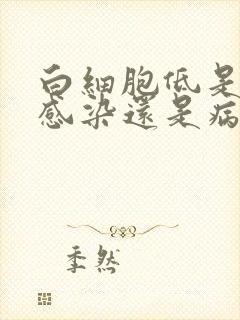 白細胞低是
感染還是病
季然